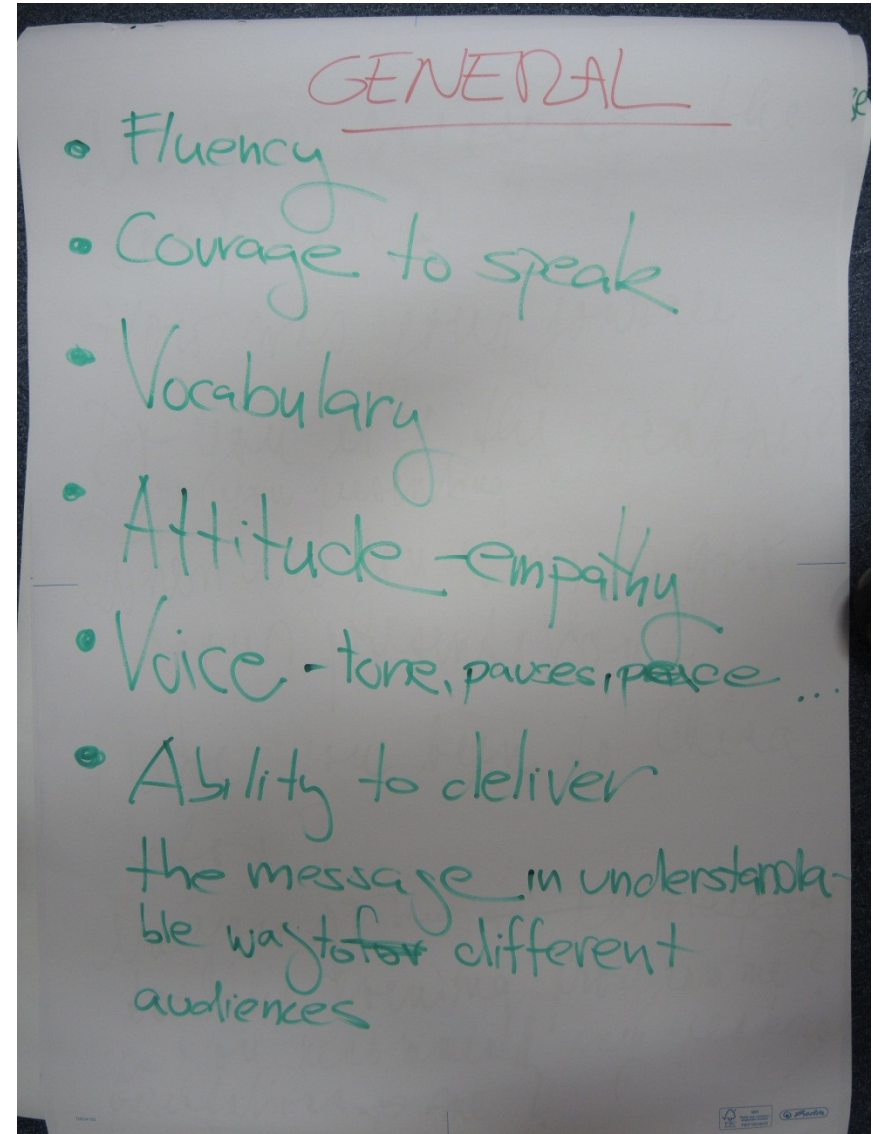 GENERAL
• Fluency
• Courage to speak
• Vocabulary
• Attitude - empathy
• Voice - tone, pauses, peace ...
• Ability to deliver
the message in understanda-
ble way to for different
audiences